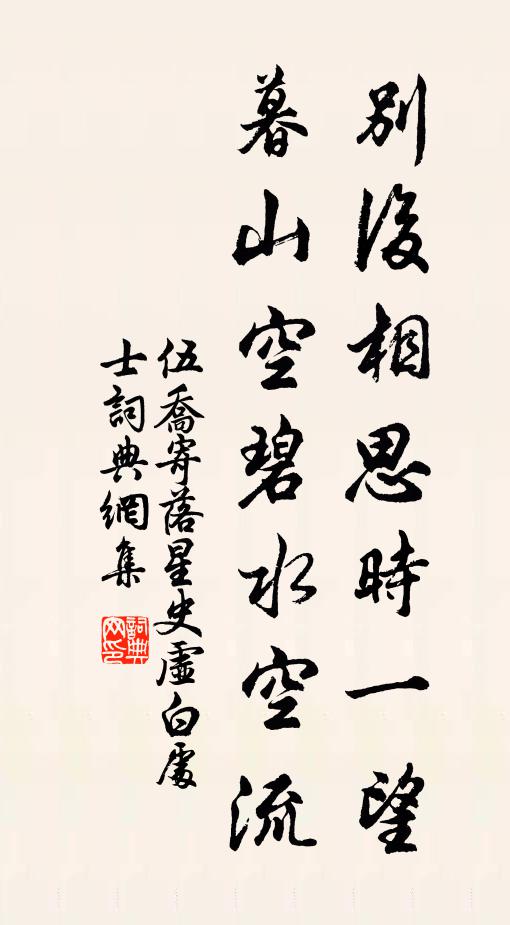 別後相思時一望
暮山空碧水空流
伍喬寄落星史虛白處
士詞典網集
詞典
网印